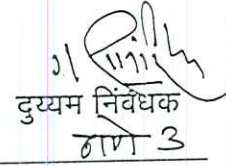 दुय्यम निंबंधक
ठाणे 3